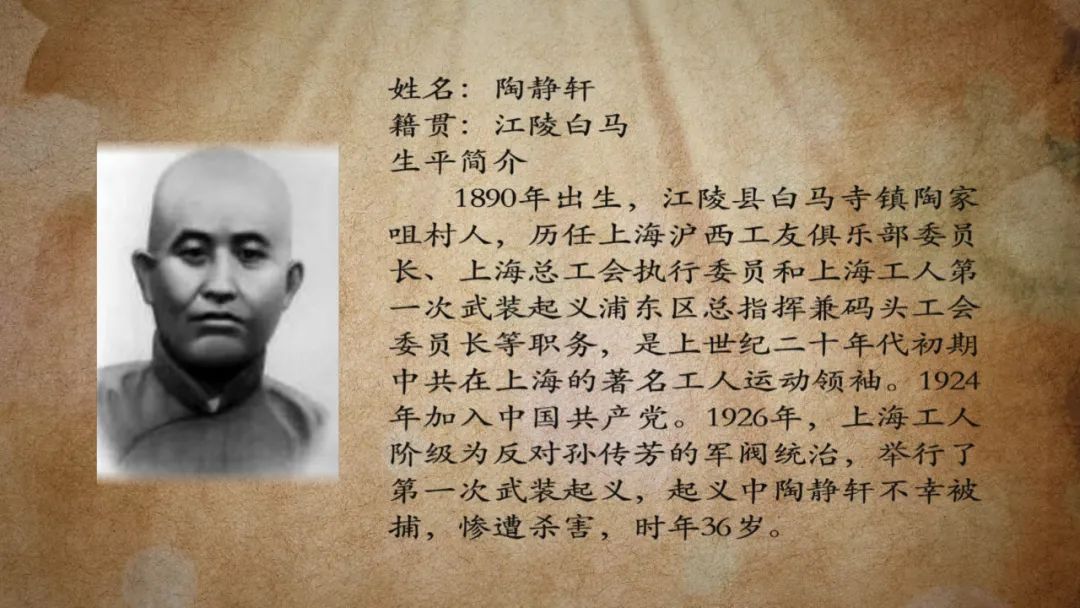 姓名：陶静轩
籍贯：江陵白马
生平简介
1890年出生，江陵县白马寺镇陶家
咀村人，历任上海沪西工友俱乐部委员
长、上海总工会执行委员和上海工人第
一次武装起义浦东区总指挥兼码头工会
委员长等职务，是上世纪二十年代初期
中共在上海的著名工人运动领袖。1924
年加入中国共产党。1926年，上海工人
阶级为反对孙传芳的军阀统治，举行了
第一次武装起义，起义中陶静轩不幸被
捕，惨遭杀害，时年36岁。